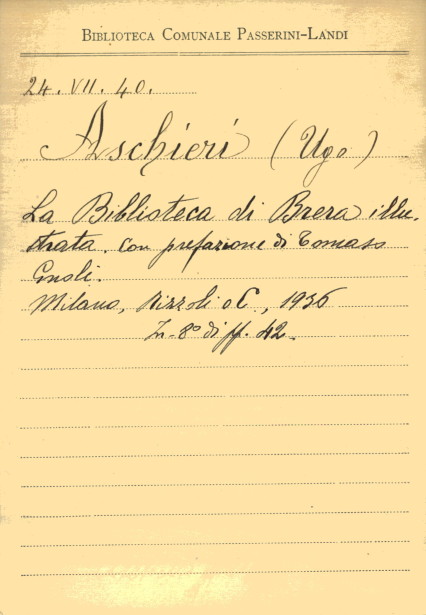 BIBLIOTECA COMUNALE PASSERINI-LANDI
24. VII. 40.
Aschieri (Ugo)
La Biblioteca di Brera illu-
strata. Con prefazione di Tomaso
Gnoli.
Milano, Rizzoli e C., 1936
In-8° di ff. 42.